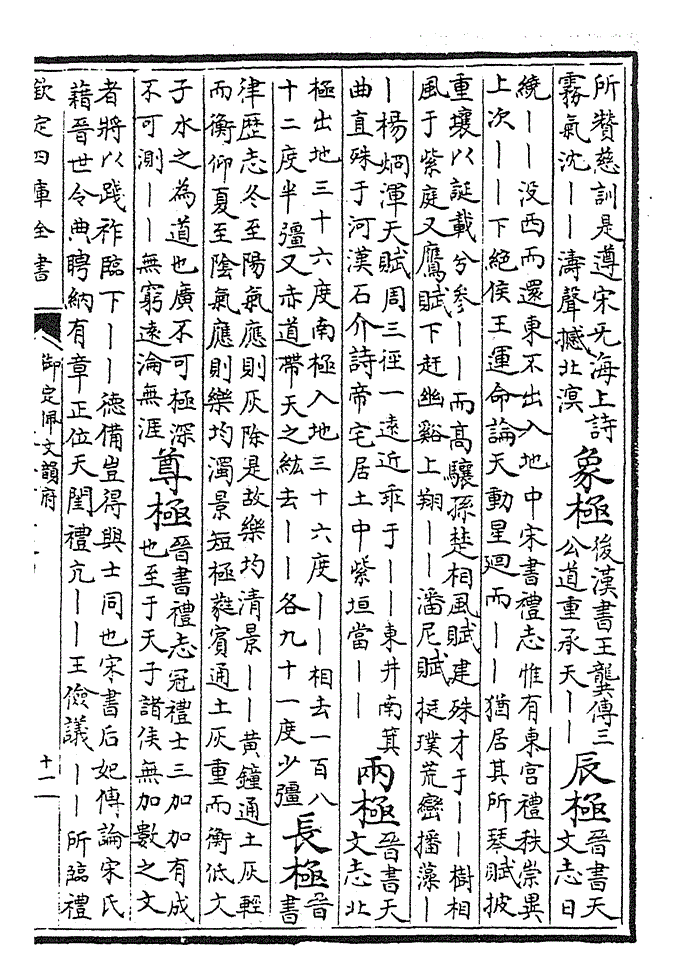 所贊慈訓是遵宋无海上詩
霧氣沈丨丨濤聲撼北溟
象極
後漢書王龔傳三
公道重承天丨丨
辰極
晉書天
文志日
繞丨丨沒西而還東不出入地中宋書禮志惟有東宮禮秩崇異
上次丨丨下絕侯王運命論天動星廻而丨丨猶居其所琴賦披
重壤以誕載兮參丨丨而高驤孫楚相風賦建殊才于丨丨樹相
風于紫庭又鷹賦下赶幽谿上翔丨丨潘尼賦挺璞荒巒播藻丨
丨楊烱渾天賦周三徑一遠近乖于丨丨東井南箕
曲直殊于河漢石介詩帝宅居土中紫垣當丨丨
兩極
晉書天
文志北
極出地三十六度南極入地三十六度丨丨相去一百八
十二度半彊又赤道帶天之紘去丨丨各九十一度少彊
長極
晉
書
律歴志冬至陽氣應則灰除是故樂均清景丨丨黃鐘通土灰輕
而衡仰夏至陰氣應則樂均濁景短極蕤賓通土灰重而衡低文
子水之為道也廣不可極深
不可測丨丨無窮遠淪無涯
尊極
晉書禮志冠禮士三加加有成
也至于天子諸侯無加數之文
者將以踐祚臨下丨丨德備豈得與士同也宋書后妃傳論宋氏
藉晉世令典聘納有章正位天閨禮亢丨丨王儉議丨丨所臨禮
欽定四庫全書
御定佩文韻府
十一